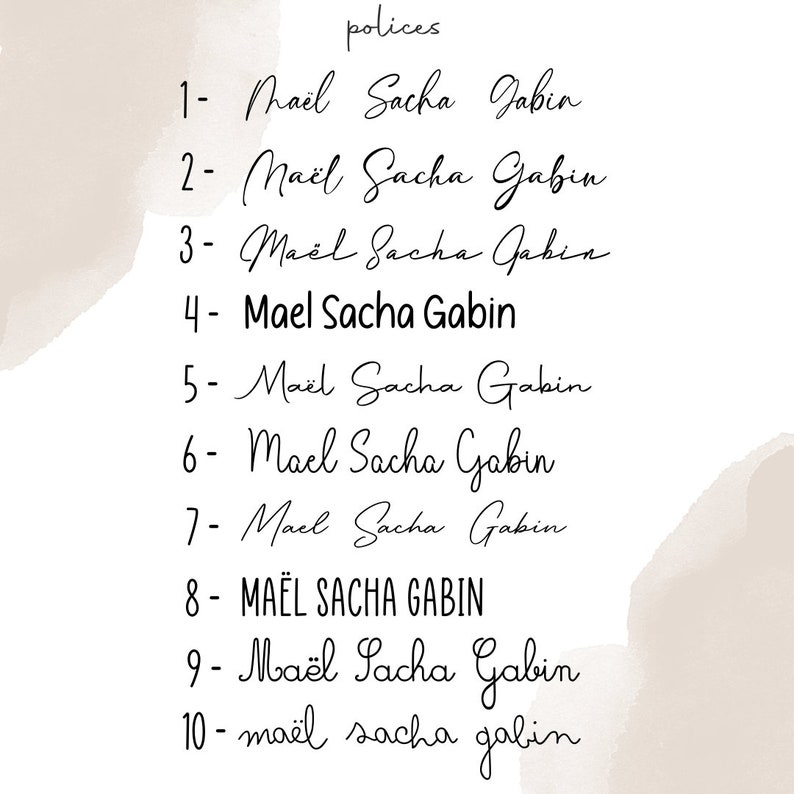 polices
1 - Maël Sacha Gabin
2 - Maël Sacha Gabin
3 - Maël Sacha Gabin
4 - Mael Sacha Gabin
5 - Maël Sacha Gabin
6 - Mael Sacha Gabin
7 - Mael Sacha Gabin
8 - MAËL SACHA GABIN
9 - Maël Sacha Gabin
10 - maël sacha gabin